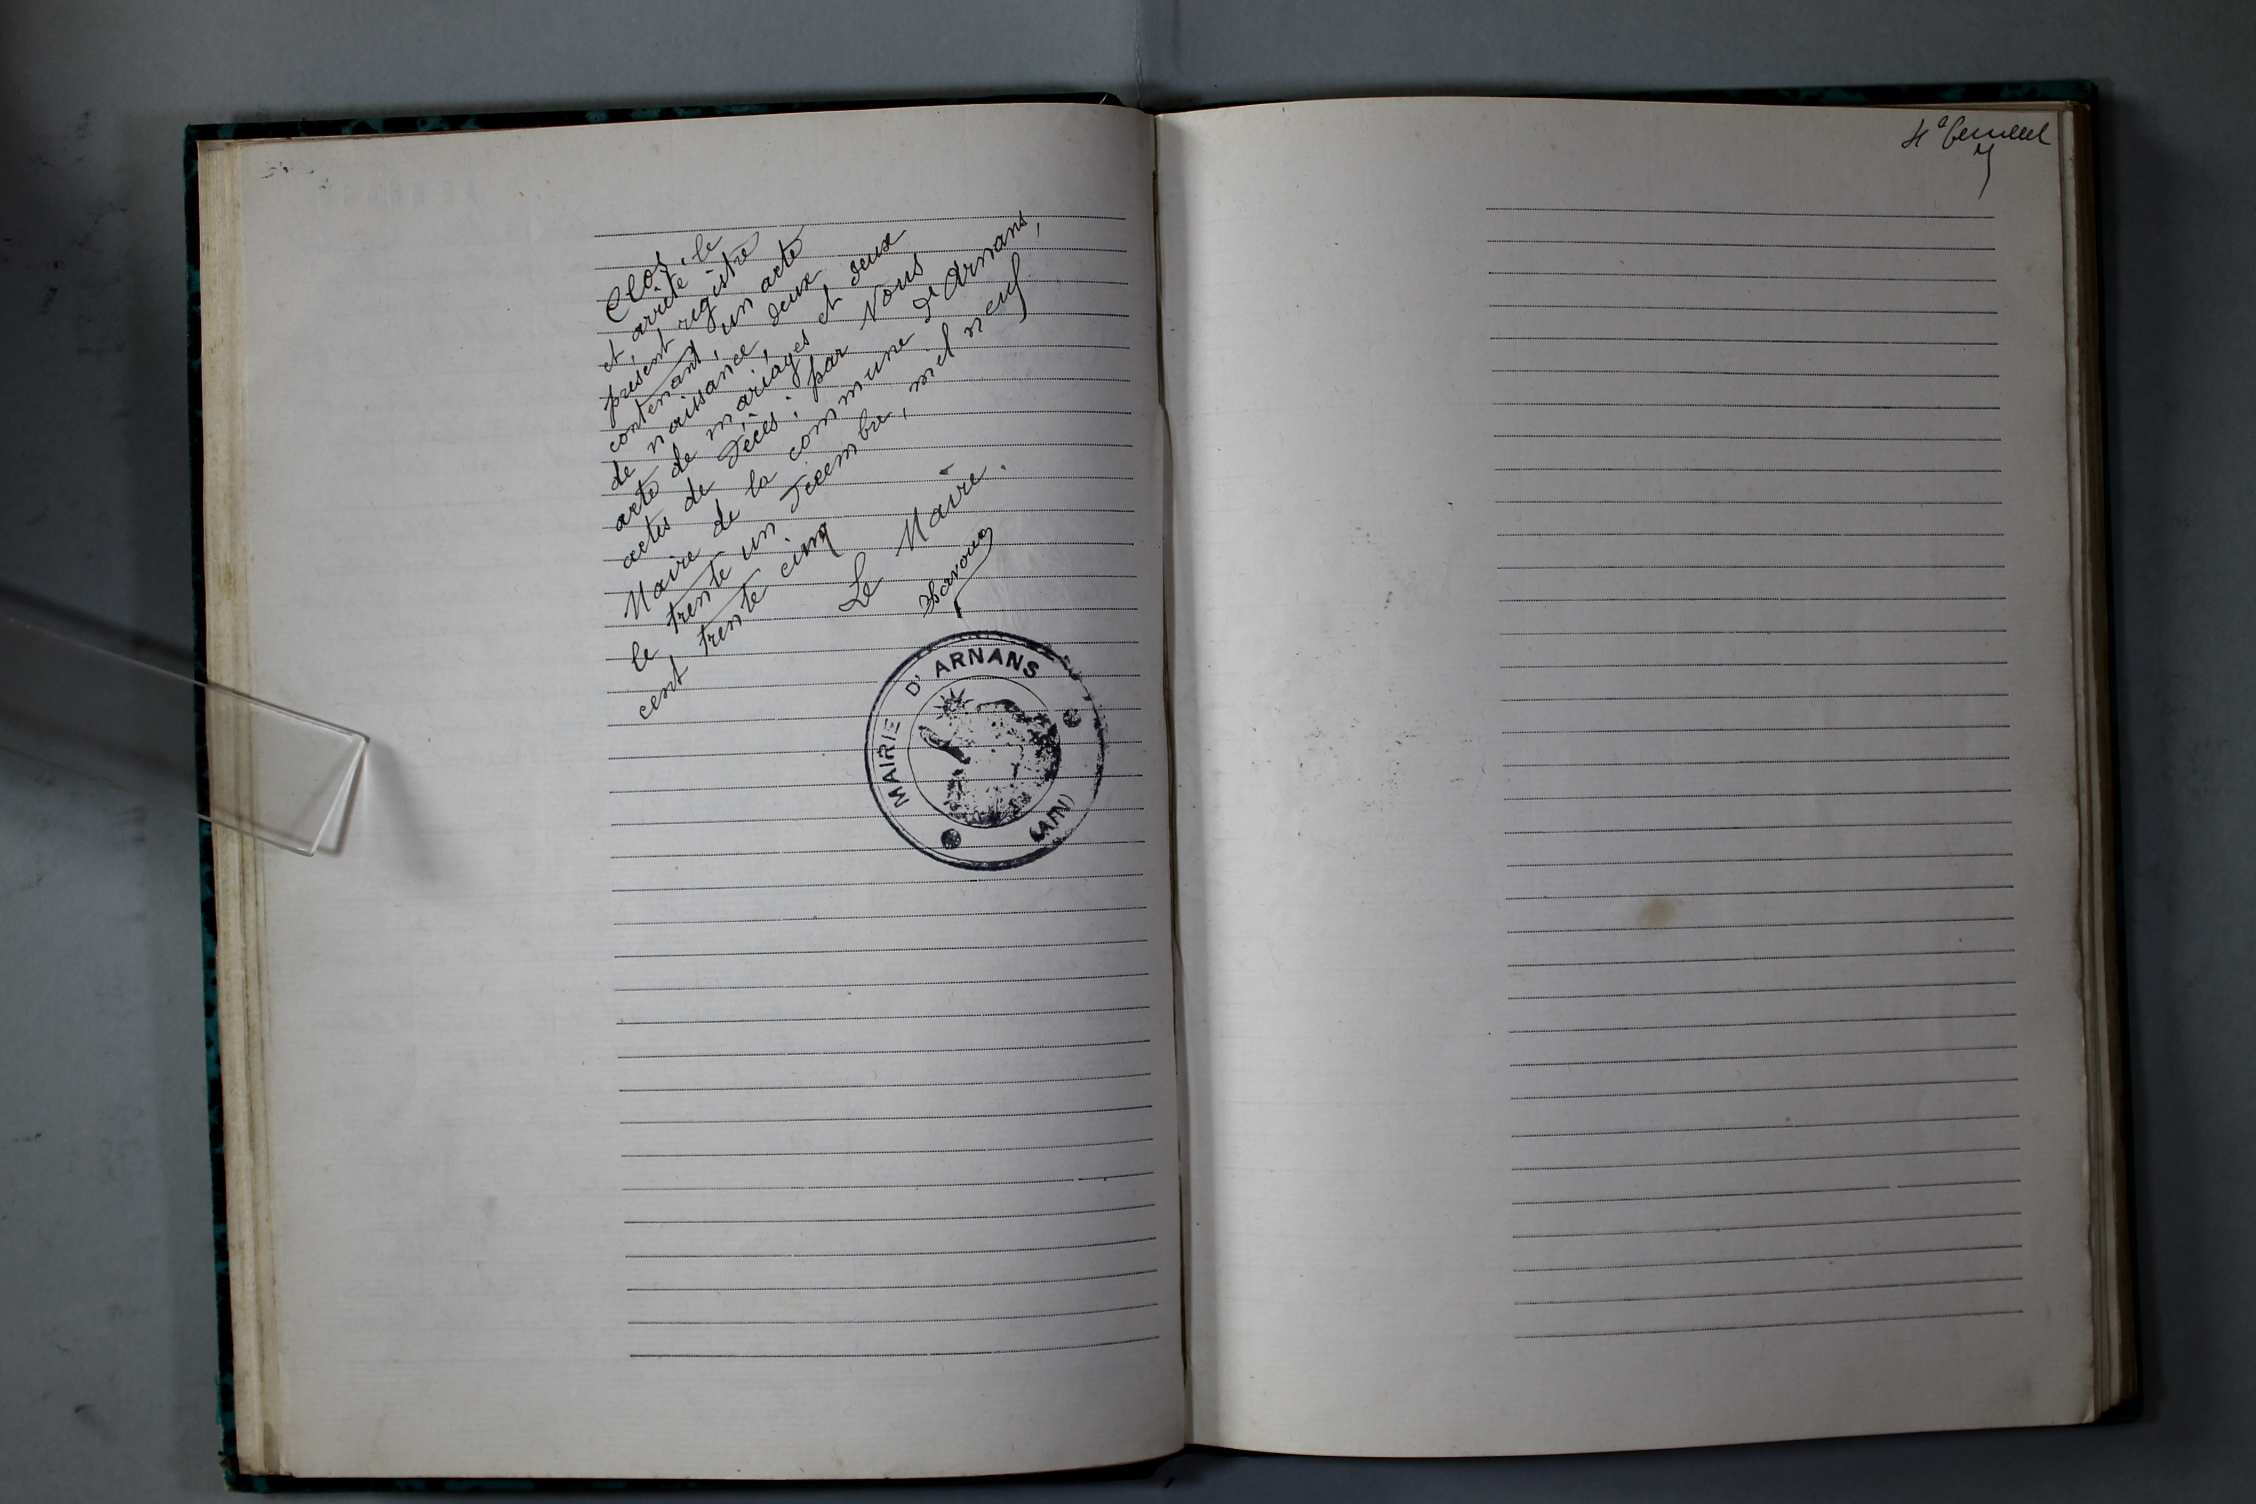 Clos, le
et, arrêté
présent, registre
contenant, un acte
de naissance, deux
acte de mariages et deux
actes de décès; par Nous
Maire de la commune d'Arnans,
le trente un Décembre, mil neuf
cent trente cinq
Le Maire.
MAIRIE D'ARNANS
(AIN)